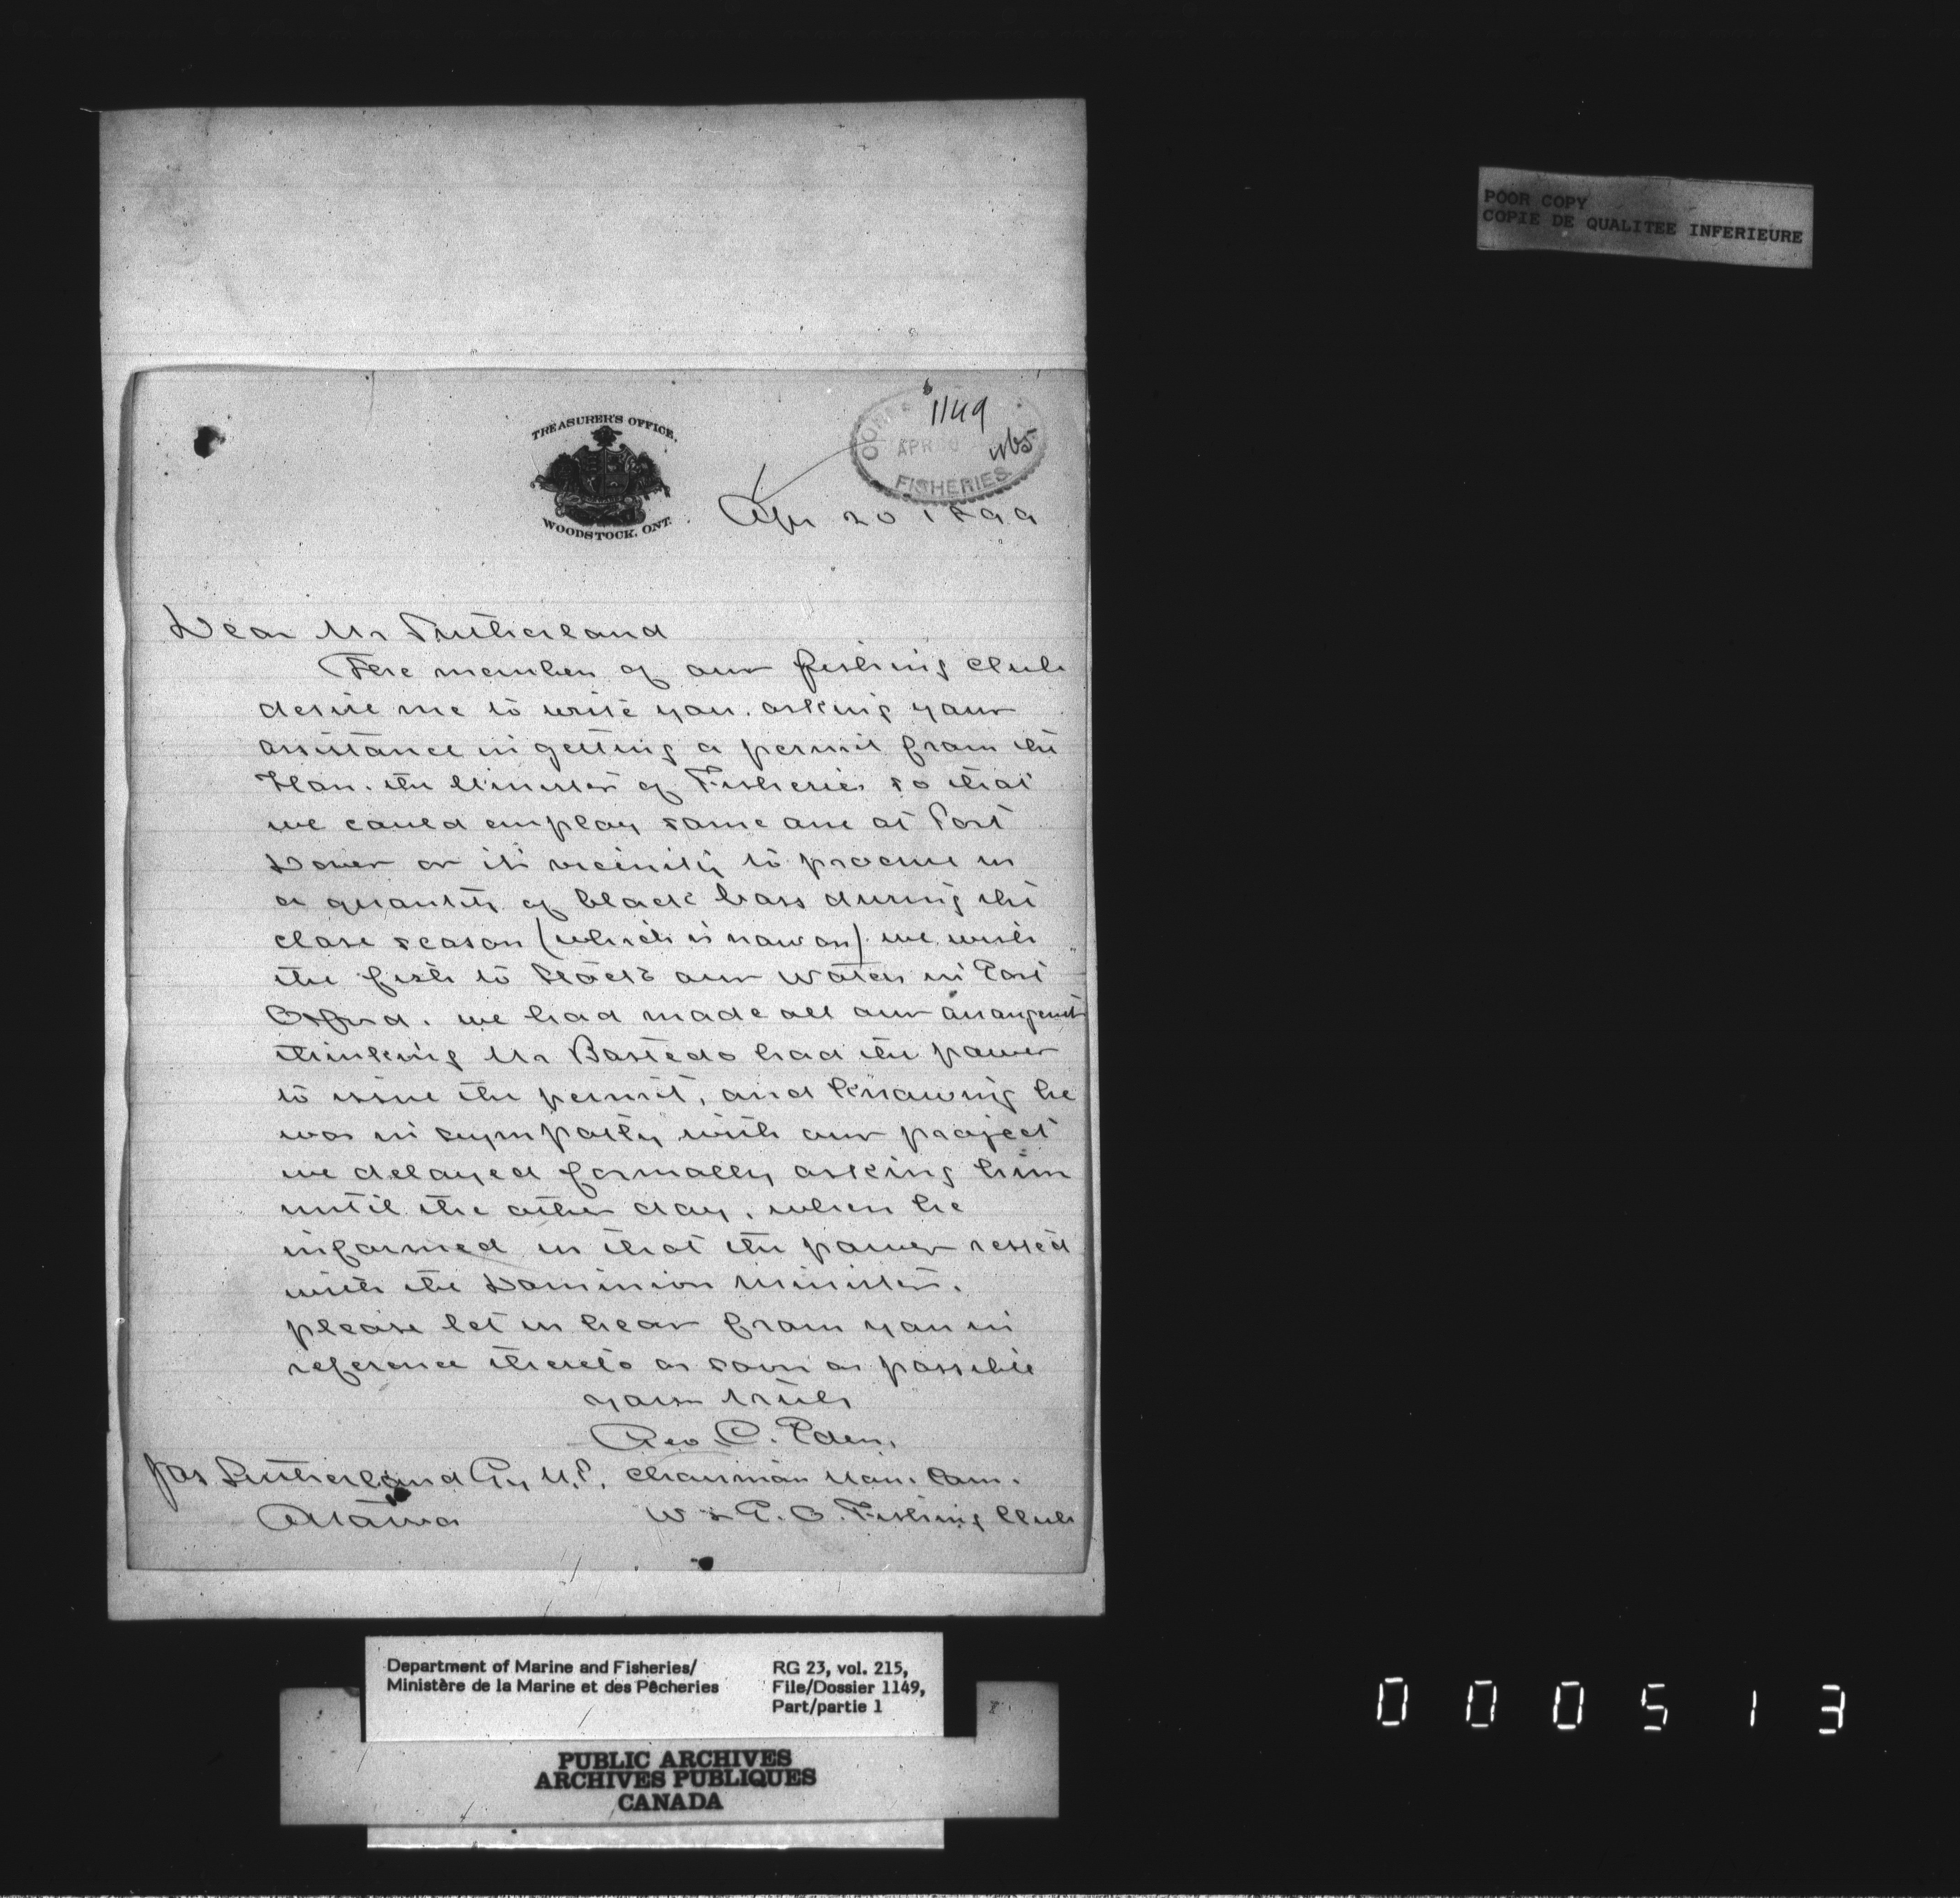 POOR COPY
COPIE DE QUALITEE INFERIEURE
TREASURER'S OFFICE,
WOODSTOCK, ONT.
1149
APR
FISHERIES
Apr 20 1899
Dear Mr Sutherland
The members of our fishing club
desire me to write you. asking your
assistance in getting a permit from the
Hon. the Minister of Fisheries so that
we could employ some one at Port
Dover or its vicinity to procure us
a quantity of black bass during the
close season (which is now on). we wish
the fish to stock our waters in East
Oxford. we had made all our arrangemts
thinking Mr Bastedo had the power
to issue the permit, and knowing he
was in sympathy with our project
we delayed formally asking him
until the other day, when he
informed us that the power rested
with the Dominion Minister.
please let us hear from you in
reference thereto as soon as possible
yours truly
Geo. C. Eden,
Jas Sutherland Esq M.P. Chairman Man. Com.
Ottawa W & E. O. Fishing Club
Department of Marine and Fisheries/
Ministère de la Marine et des Pêcheries
RG 23, vol. 215,
File/Dossier 1149,
Part/partie 1
PUBLIC ARCHIVES
ARCHIVES PUBLIQUES
CANADA
000513